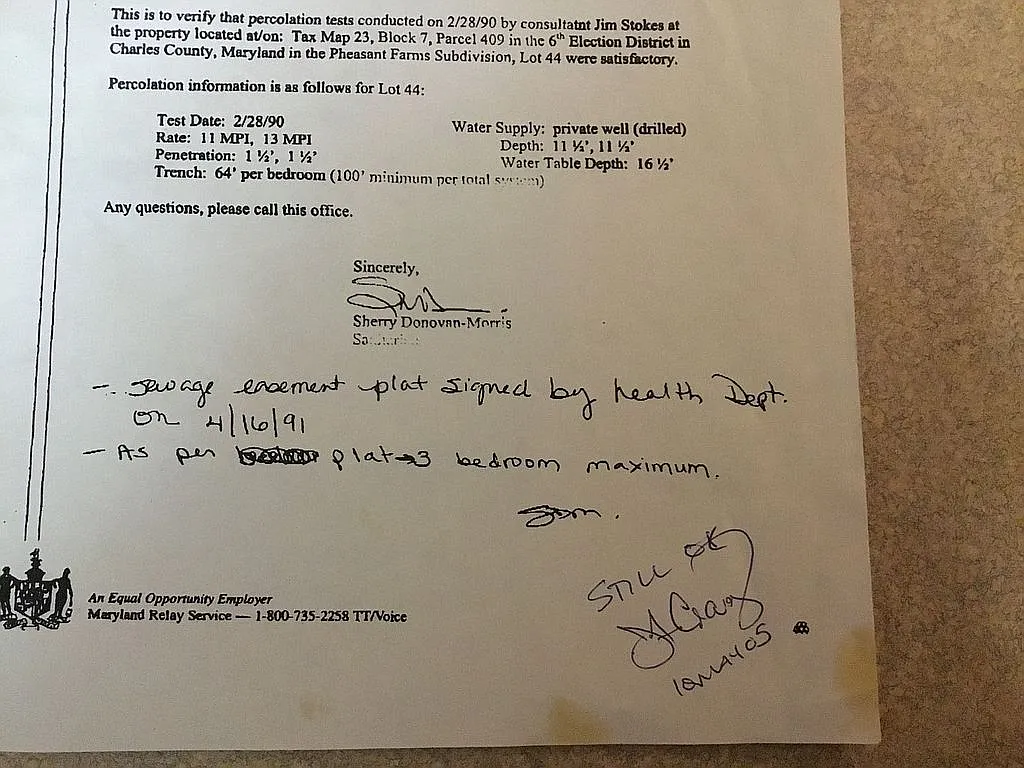 This is to verify that percolation tests conducted on 2/28/90 by consultatnt Jim Stokes at
the property located at/on: Tax Map 23, Block 7, Parcel 409 in the 6th Election District in
Charles County, Maryland in the Pheasant Farms Subdivision, Lot 44 were satisfactory.
Percolation information is as follows for Lot 44:
Test Date: 2/28/90
Rate: 11 MPI, 13 MPI
Penetration: 1 ½', 1 ½'
Trench: 64' per bedroom (100' minimum per total system)
Water Supply: private well (drilled)
Depth: 11 ½', 11 ½'
Water Table Depth: 16 ½'
Any questions, please call this office.
Sincerely,
Sherry Donovan-Morris
- sewage easement plat signed by health Dept.
on 4/16/91
- As per plat → 3 bedroom maximum.
STILL OK
10MAY05
An Equal Opportunity Employer
Maryland Relay Service — 1-800-735-2258 TT/Voice